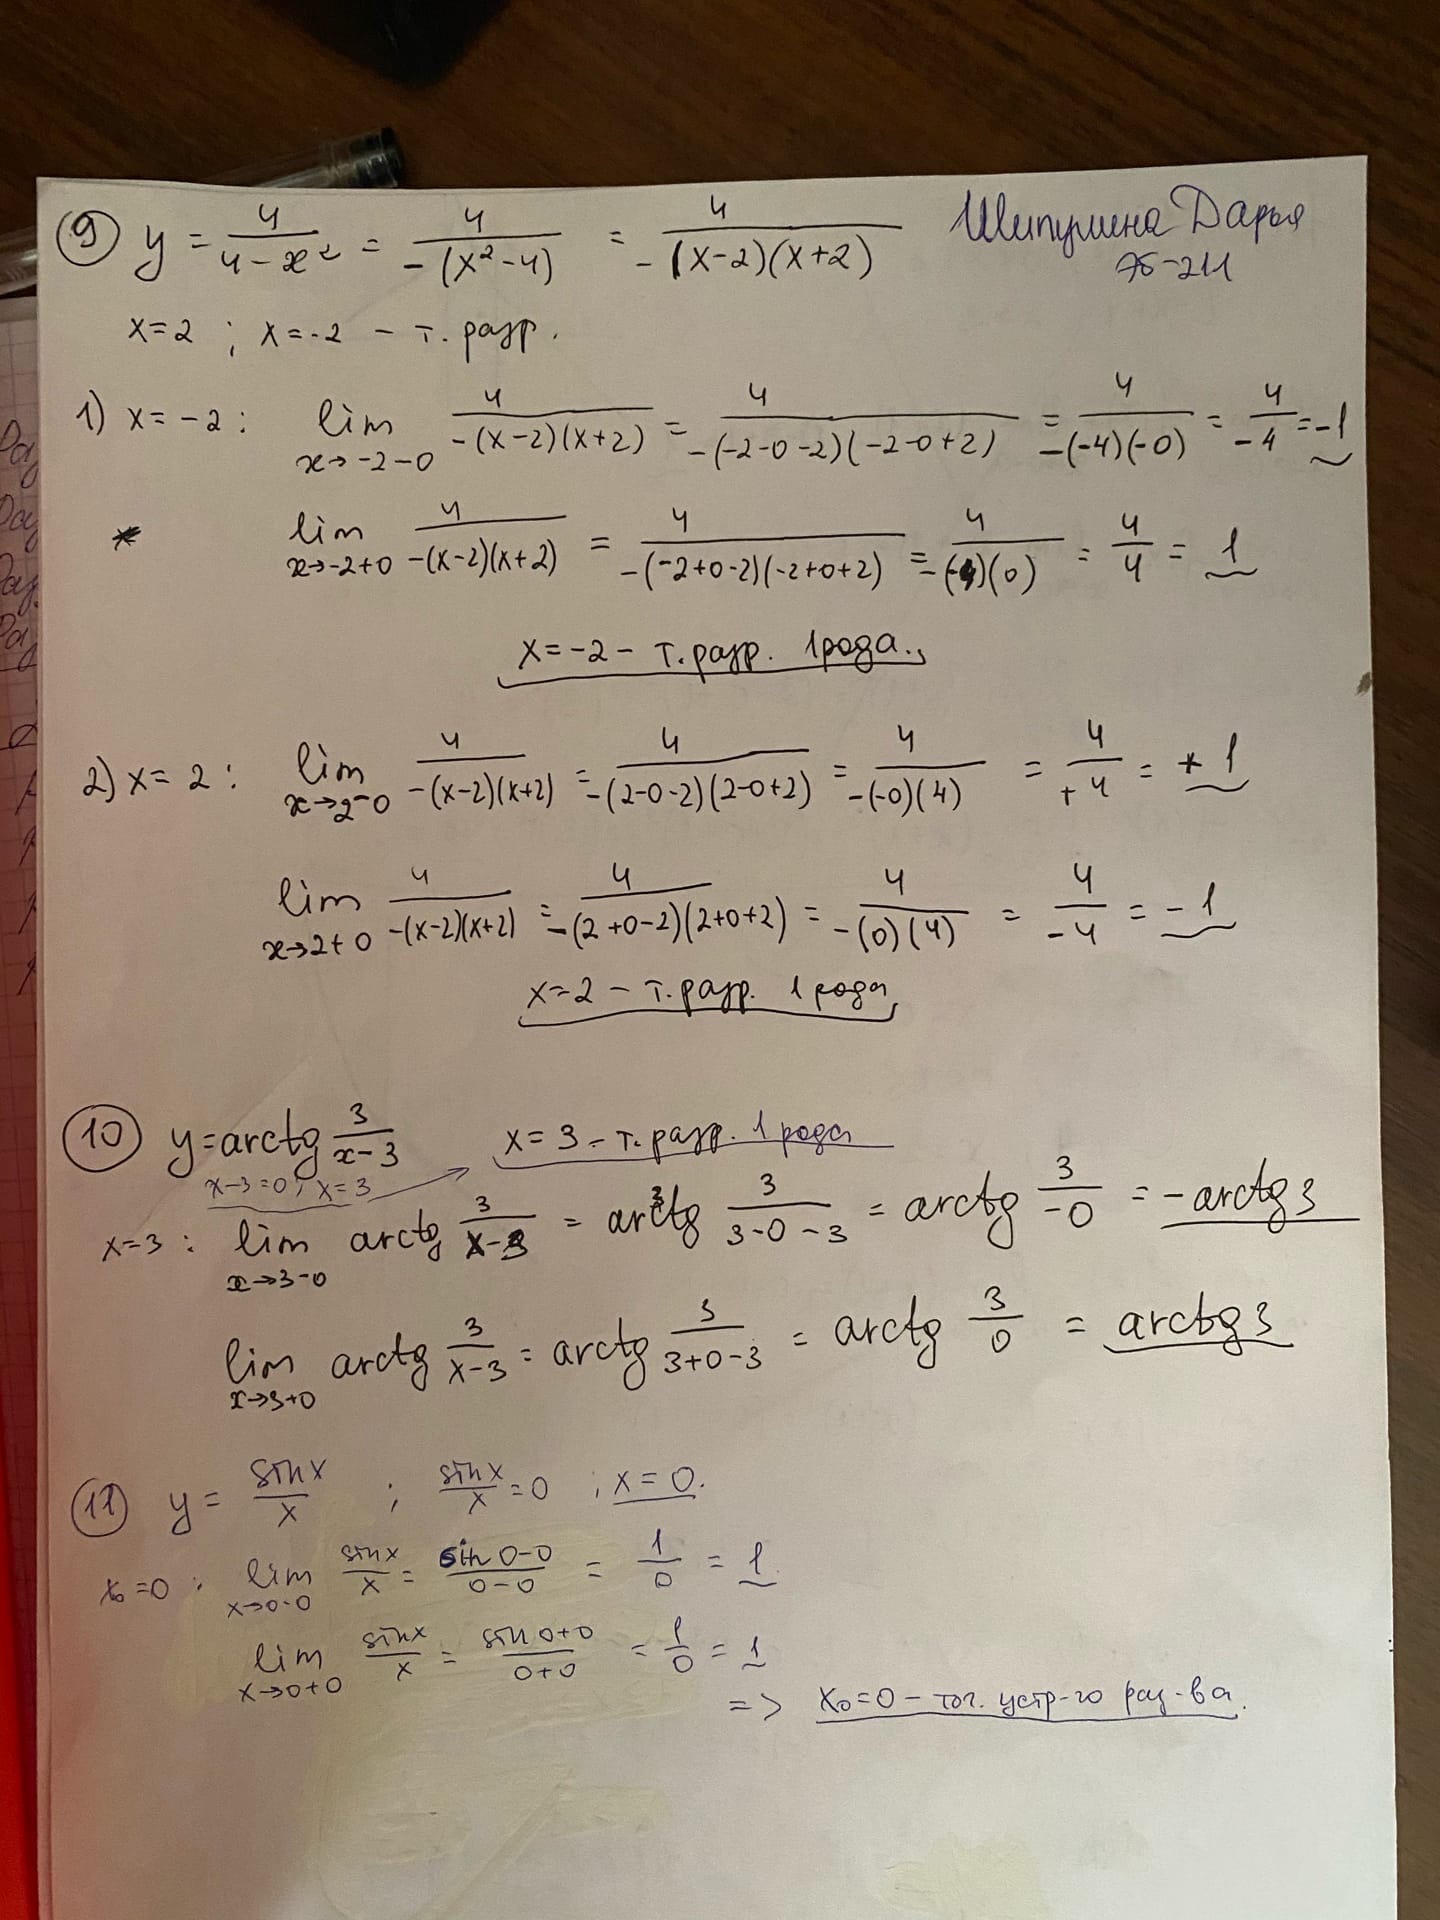 ⑨ y = 4/(4 - x²) = 4/(-(x² - 4)) = 4/(-(x-2)(x+2))
Шипулина Дарья
x = 2 ; x = -2 - т. разр.
1) x = -2 : lim x→-2-0 4/(-(x-2)(x+2)) = 4/(-(-2-0-2)(-2-0+2)) = 4/(-(-4)(-0)) = 4/-4 = -1
* lim x→-2+0 4/(-(x-2)(x+2)) = 4/(-(-2+0-2)(-2+0+2)) = 4/(-(-4)(0)) = 4/4 = 1
x = -2 - т. разр. 1 рода.,
2) x = 2 : lim x→2-0 4/(-(x-2)(x+2)) = 4/(-(2-0-2)(2-0+2)) = 4/(-(-0)(4)) = 4/+4 = +1
lim x→2+0 4/(-(x-2)(x+2)) = 4/(-(2+0-2)(2+0+2)) = 4/(-(0)(4)) = 4/-4 = -1
x = 2 - т. разр. 1 рода,
⑩ y = arctg 3/(x-3) x = 3 - т. разр. 1 рода
x-3 = 0; x = 3
x = 3 : lim x→3-0 arctg 3/(x-3) = arctg 3/(3-0-3) = arctg 3/-0 = -arctg 3
lim x→3+0 arctg 3/(x-3) = arctg 3/(3+0-3) = arctg 3/0 = arctg 3
⑪ y = sinx/x ; sinx/x = 0 ; x = 0.
x₀ = 0 : lim x→0-0 sinx/x = sin 0-0/0-0 = 1/0 = 1
lim x→0+0 sinx/x = sin 0+0/0+0 = 1/0 = 1
=> x₀ = 0 - точ. устр-го раз-ва.